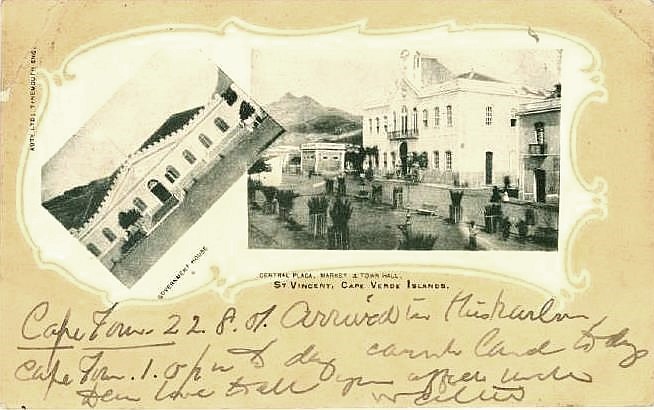 AUTY LTD; TYNEMOUTH ENG.
GOVERNMENT HOUSE
CENTRAL PLACA, MARKET & TOWN HALL.
ST VINCENT, CAPE VERDE ISLANDS.
Cape Town. 22.8.01. Arrived in this harbour
Cape Town. 1.0 to day cannot land to day
Dear love to all